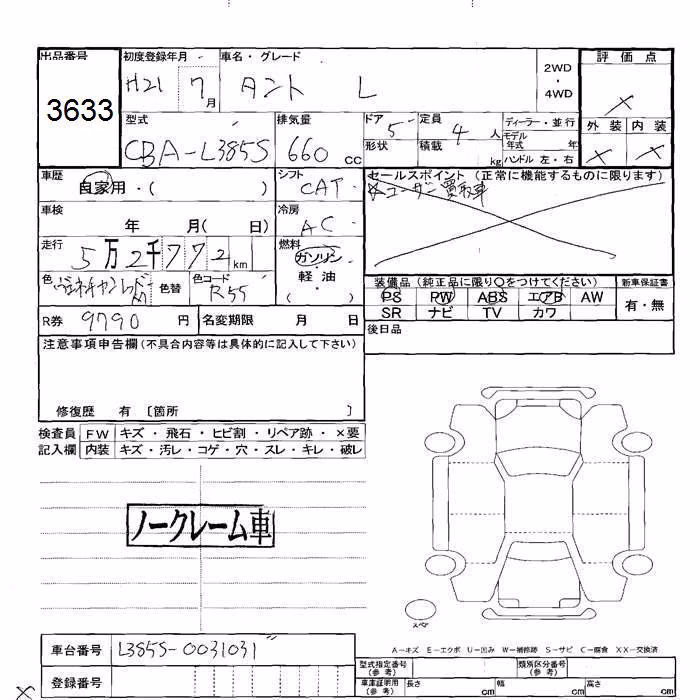 出品番号 初度登録年月 車名・グレード 評価点
3633 H21 7月 タント L 2WD・4WD ×
型式 排気量 ドア 定員 ディーラー・並行 外装 内装
CBA-L385S 660cc 5 4人 モデル年式 年 × ×
形状 積載 kg ハンドル 左・右
車歴 シフト セールスポイント (正常に機能するものに限ります)
自家用・( ) CAT ユーザー買取車
車検 冷房
年 月( 日) AC
走行 燃料
5万2千772km ガソリン・軽・油 ( )
装備品 (純正品に限り○をつけてください) 新車保証書
色 色替 色コード R55 PS PW ABS エアB AW 有・無
SR ナビ TV カワ
R券 9790円 名変期限 月 日 後日品
注意事項申告欄 (不具合内容等は具体的に記入して下さい)
修復歴 有 〔箇所 〕
検査員 FW キズ・飛石・ヒビ割・リペア跡・×要
記入欄 内装 キズ・汚レ・コゲ・穴・スレ・キレ・破レ
ノークレーム車
スペア
A-キズ E-エクボ U-凹み W-補修跡 S-サビ C-腐食 XX-交換済
車台番号 L385S-0031031
型式指定番号 (参考) 類別区分番号 (参考)
登録番号 車庫証明用 (参考) 長さ cm 幅 cm 高さ cm
×